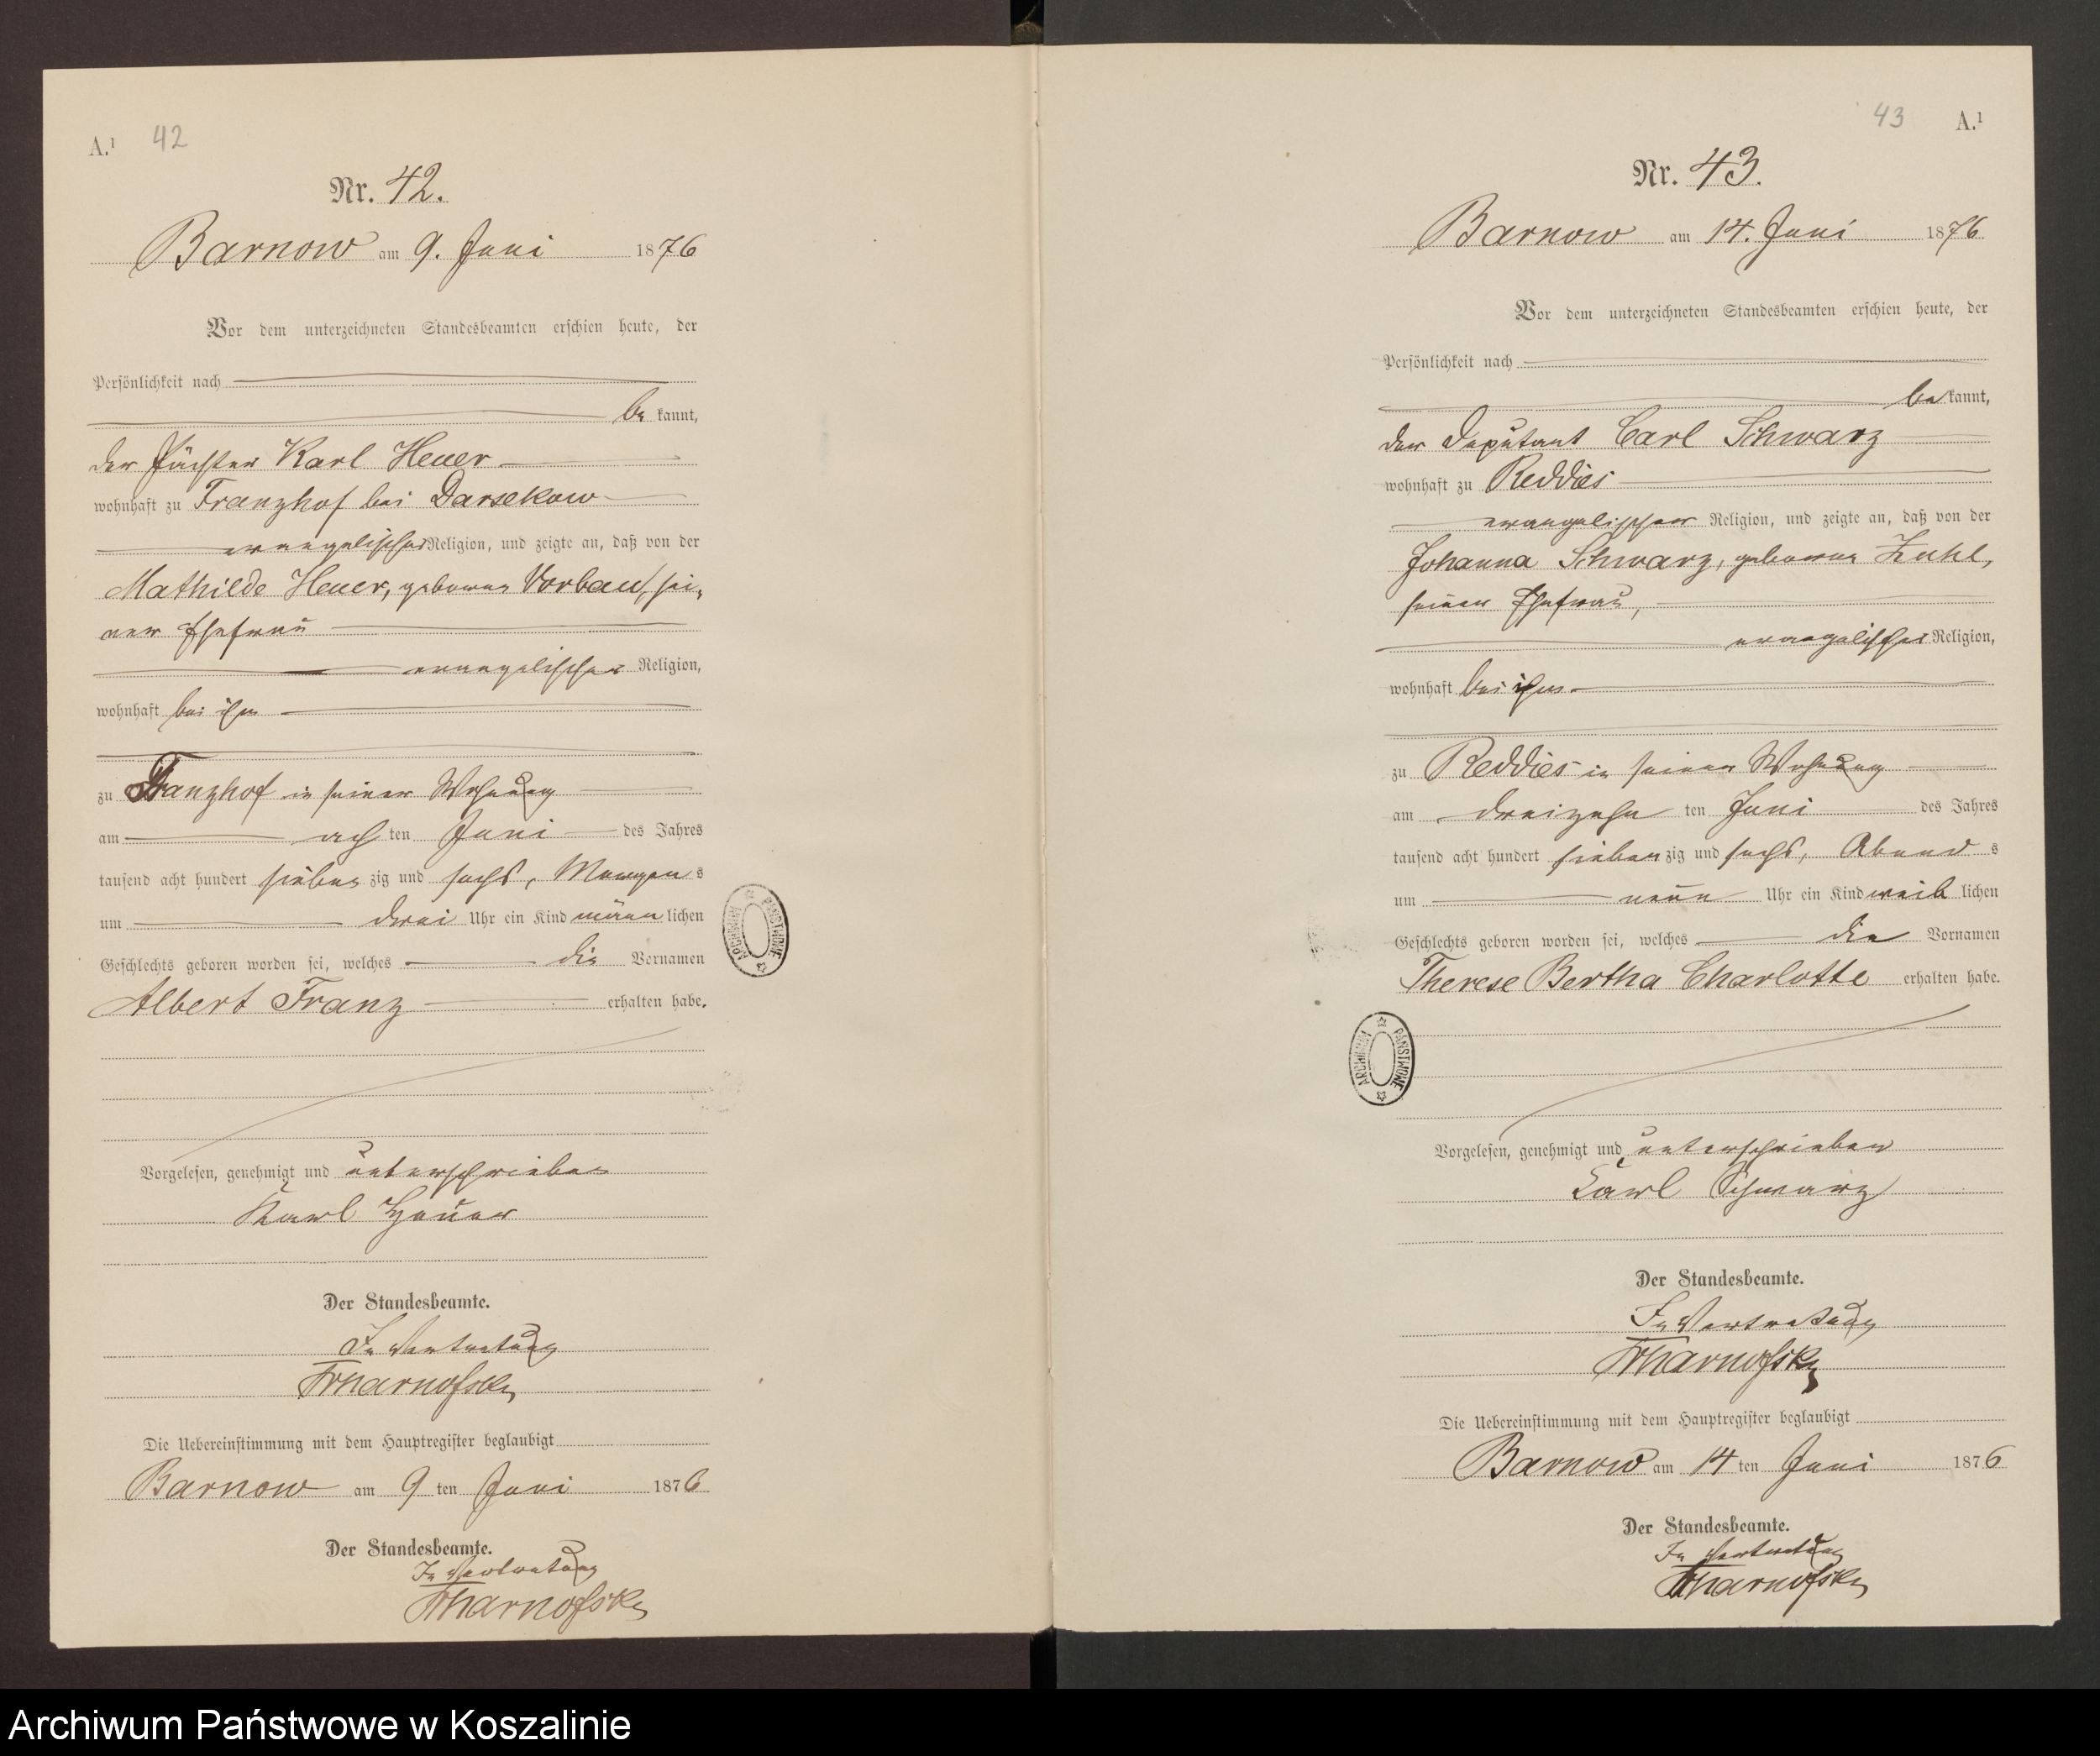 A.¹ 42
Nr. 42.
Barnow am 9. Juni 1876
Vor dem unterzeichneten Standesbeamten erschien heute, der
Persönlichkeit nach
be kannt,
der Pächter Karl Heuer
wohnhaft zu Franzhof bei Darsekow
evangelischer Religion, und zeigte an, daß von der
Mathilde Heuer, geborene Vorbau, sei-
ner Ehefrau
evangelischer Religion,
wohnhaft bei ihm
zu Franzhof in seiner Wohnung
am ach ten Juni des Jahres
tausend acht hundert sieben zig und sechs, Morgen s
um drei Uhr ein Kind männ lichen
Geschlechts geboren worden sei, welches die Vornamen
Albert Franz erhalten habe.
Vorgelesen, genehmigt und unterschrieben
Karl Heuer
Der Standesbeamte.
In Vertretung
Die Uebereinstimmung mit dem Hauptregister beglaubigt
Barnow am 9 ten Juni 1876
Der Standesbeamte.
In Vertretung
ARCHIWUM PAŃSTWOWE
43 A.¹
Nr. 43.
Barnow am 14. Juni 1876
Vor dem unterzeichneten Standesbeamten erschien heute, der
Persönlichkeit nach
be kannt,
der Deputant Carl Schwarz
wohnhaft zu Reddies
evangelischer Religion, und zeigte an, daß von der
Johanna Schwarz, geborene Kuhl,
seiner Ehefrau,
evangelischer Religion,
wohnhaft bei ihm
zu Reddies in seiner Wohnung
am dreizehn ten Juni des Jahres
tausend acht hundert sieben zig und sechs, Abend s
um neun Uhr ein Kind weib lichen
Geschlechts geboren worden sei, welches die Vornamen
Therese Bertha Charlotte erhalten habe.
ARCHIWUM PAŃSTWOWE
Vorgelesen, genehmigt und unterschrieben
Carl Schwarz
Der Standesbeamte.
In Vertretung
Die Uebereinstimmung mit dem Hauptregister beglaubigt
Barnow am 14 ten Juni 1876
Der Standesbeamte.
In Vertretung
Archiwum Państwowe w Koszalinie